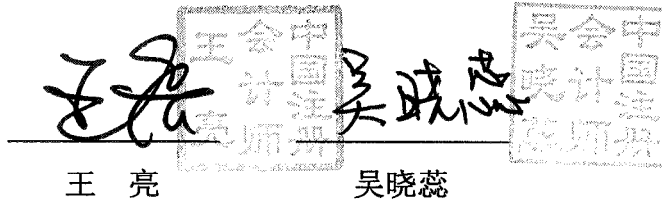 王亮 吴晓蕊
中国注册会计师王亮 中国注册会计师吴晓蕊
王 亮 吴晓蕊